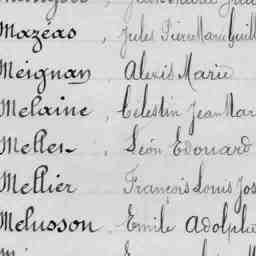 Mazeas, Jules Pierre Marie Guill
Meignan, Alexis Marie
Melaine, Célestin Jean Mar
Meller, Léon Edouard
Mellier, François Louis Jos
Melusson, Emile Adolphe